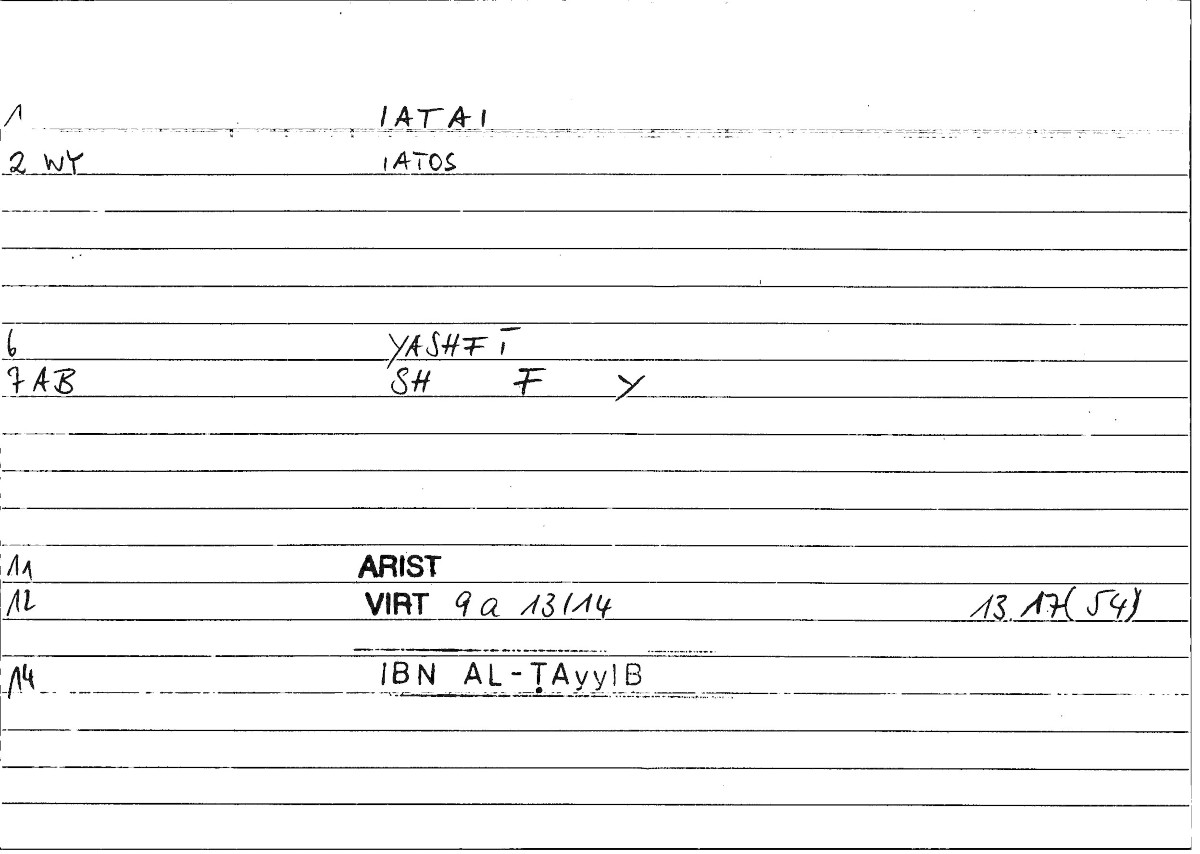 1 IATAI
2 WY IATOS
6 YASHFĪ
7 AB SH F Y
11 ARIST
12 VIRT 9a 13/14 13.17(54)
14 IBN AL-ṬAyyIB